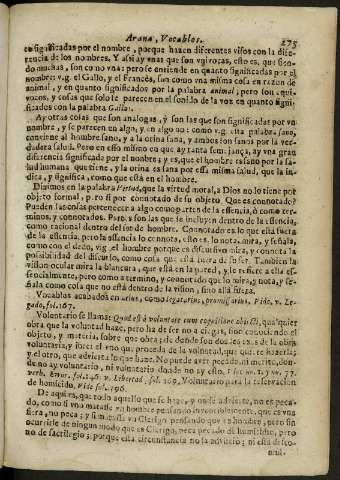 Arana, Vocablos. 275
significadas por el nombre, porque hazen diferentes visos con la dife-
rencia de los nombres. Y assi ay vnas que son vniuocas, esto es, que sien-
do muchas, son como vna: pero se entiende en quanto significadas por el
nombre: v.g. el Gallo, y el Francès, son como vna misma cosa en razon de
animal, y en quanto significados por la palabra animal; pero son equi-
vocos, y cosas que solo se parecen en el sonido de la voz en quanto signi-
ficados con la palabra Gallus.
Ay otras cosas que son analogas, y son las que son significadas por vn
nombre, y se parecen en algo, y en algo no: como v.g. esta palabra sano,
conviene al hombre sano, y a la orina sana, y ambos son sanos por la ver-
dadera salud. Pero en esso mismo en que ay tanta semejança, ay vna gran
diferencia significada por el nombre; y es, que el hombre es sano por la sa-
lud humana que tiene, y la orina es sana por essa misma salud, que in-
dica, y significa, como que està en el hombre.
Diximos en la palabra Virtud, que la virtud moral, a Dios no lo tiene por
objeto formal, pero si por connotado de su objeto. Que es connotado?
Pueden las cosas pertenecer a algo como partes de la essencia, ò como ter-
minos, y connotados. Partes son las que se incluyen dentro de la essencia,
como racional dentro del ser de hombre. Connotado es lo que està fuera
de la essencia, pero la essencia lo connota, esto es, lo nota, mira, y señala,
como con el dedo, v.g. el hombre porque es discursivo mira, y connota la
possibilidad del discurso, como cosa que està fuera de su ser. Tambien la
vision ocular mira la blancura, que està en la pared, y le refiere a ella es-
sencialmente, pero como a termino, y connotado que lo mira, y nota, y se-
ñala como cosa que no està dentro de la vision, sino allà fuera.
Vocablos acabados en arius, como legatarius, promissarius. Vide, v. Le-
gado, fol. 167.
Voluntario se llama: Quod est à voluntate cum cognitione obiecti, qualquier
obra que la voluntad haze, pero ha de ser no a ciegas, sino conociendo el
objeto, y materia, sobre que obra; de donde son dos las
voluntaria, y
y el otro, que advierta lo que haze. No puede aver pecado, ni merito, don-
de no ay voluntario, ni voluntario donde no ay esto. Vide
verb. Error, fol. 146. v. Libertad, fol. 169. Voluntario para la reservacion
de homicido, Vide fol. 196.
De aqui es, que todo aquello que se haze, y no se advierte, no es peca-
do, como si vno matasse vn hombre pensando invenciblemente, que es vna
fiera, no peca; y si matasse vn Clerigo pensando que es hombre, pero sin
ocurrirle de ningun modo que es Clerigo, peca pecado de homicidio, pero
no de sacrilegio; porque esta circunstancia no la advirtio; ni està